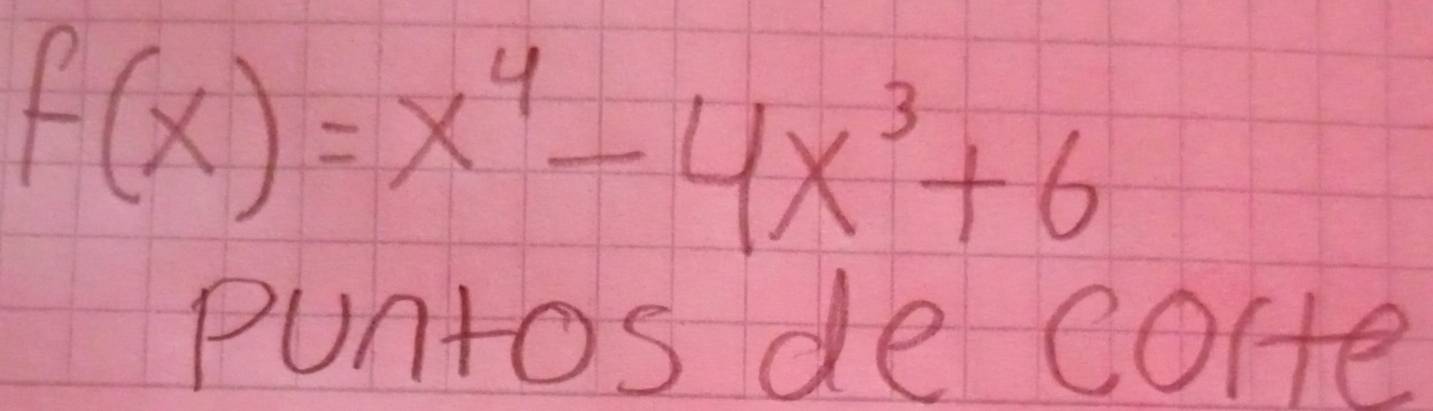 f(x) = x⁴ - 4x³ + 6
puntos de corte